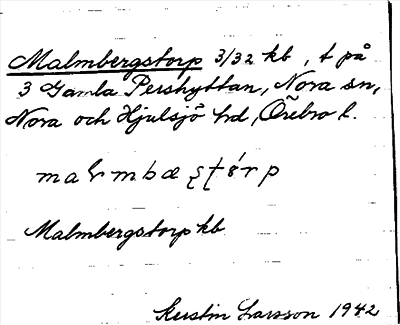 Malmbergstorp 3/32 kb, t på
3 Gamla Pershyttan, Nora sn,
Nora och Hjulsjö hd, Örebro l.
Malmbergstorp kb
Kerstin Larsson 1942